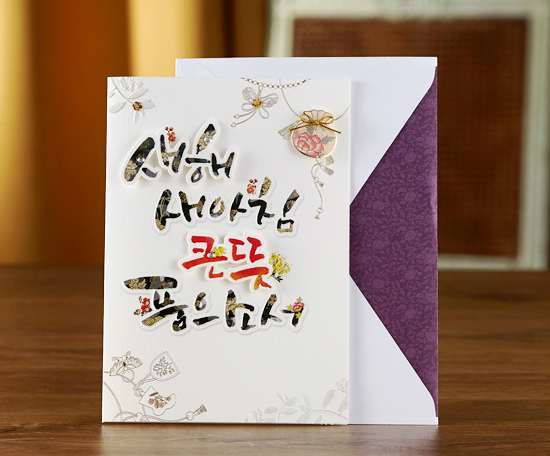 새해
새아침
큰뜻
품으소서